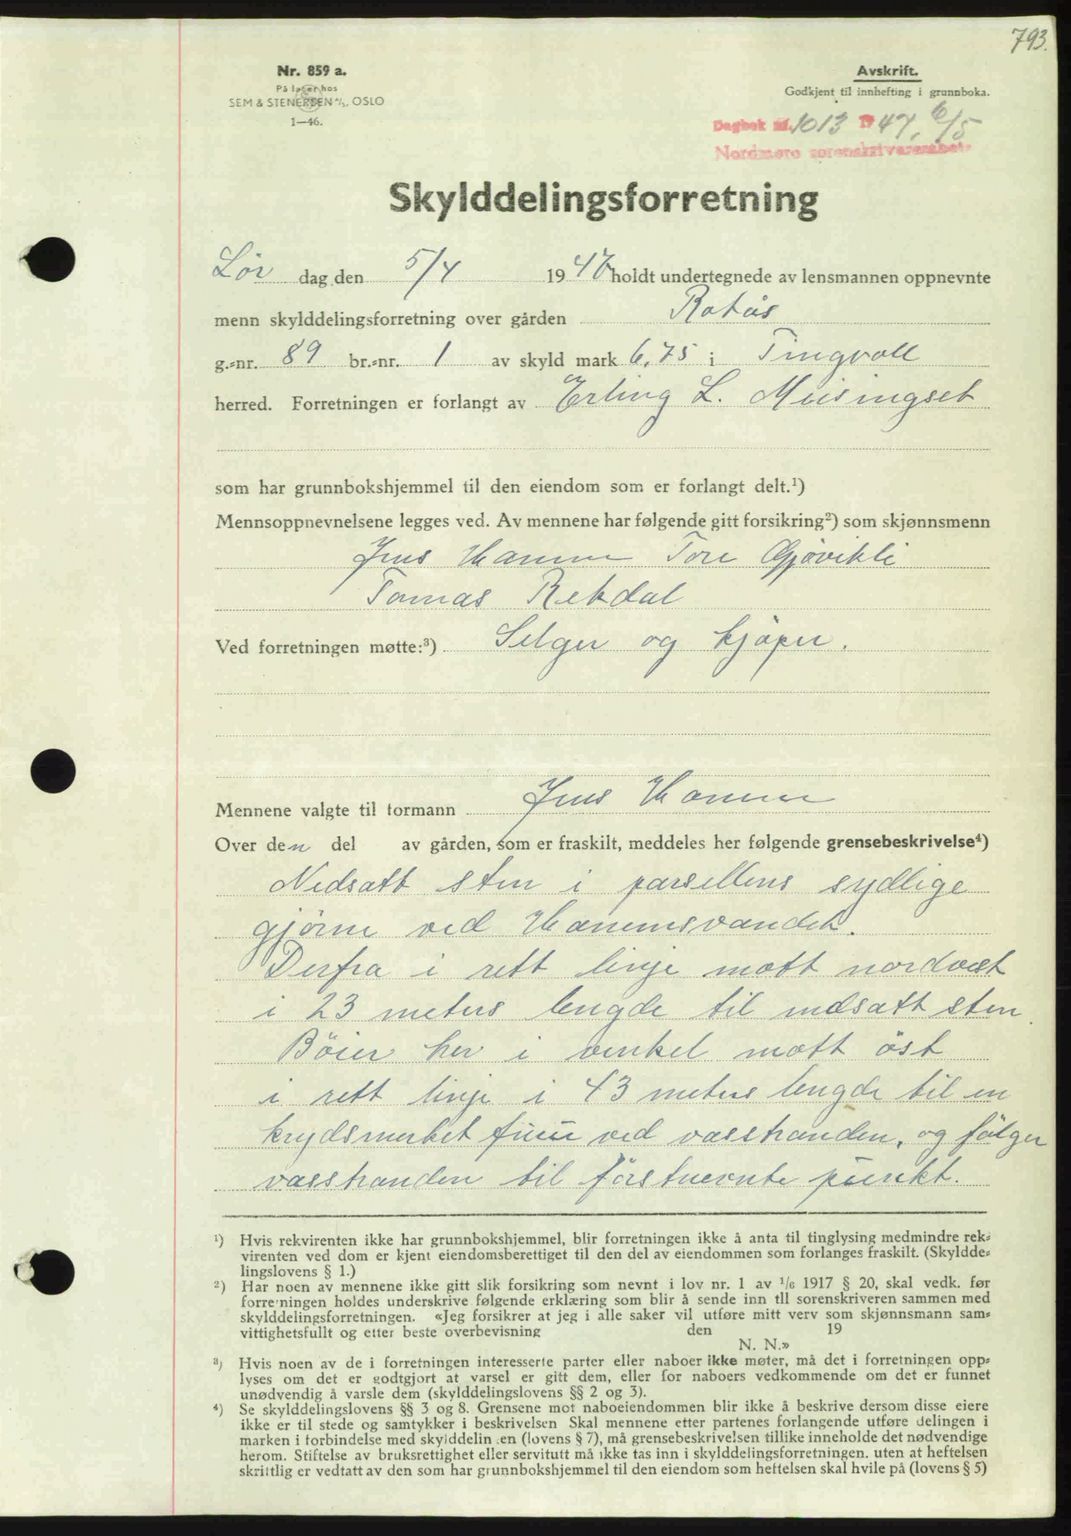 793.
Nr. 859 a.
På lager hos
SEM & STENERSEN A/S, OSLO
1—46.
Avskrift.
Godkjent til innhefting i grunnboka.
Dagbok nr. 1013 1947, 6/5
Nordmøre sorenskriverembete
Skylddelingsforretning
Lør dag den 5/4 1947 holdt undertegnede av lensmannen oppnevnte
menn skylddelingsforretning over gården Rotås
g.-nr. 89 br.-nr. 1 av skyld mark 6,75 i Tingvoll
herred. Forretningen er forlangt av Erling L. Meisingset
som har grunnbokshjemmel til den eiendom som er forlangt delt.¹)
Mennsoppnevnelsene legges ved. Av mennene har følgende gitt forsikring²) som skjønnsmenn
Jens Hanem Tore Gjøvikli
Tomas Rekdal
Ved forretningen møtte:³) Selger og kjøper.
Mennene valgte til formann Jens Hanem
Over den del av gården, som er fraskilt, meddeles her følgende grensebeskrivelse⁴)
Nedsatt sten i parsellens sydlige
gjørne ved Hanemsvandet.
Derfra i rett linje mott nordvest
i 23 meters lengde til nedsatt sten.
Böier her i vinkel mott öst
i rett linje i 43 meters lengde til en
krydsmerket furu ved vasstranden, og fölger
vasstranden til förstnevnte punkt.
¹) Hvis rekvirenten ikke har grunnbokshjemmel, blir forretningen ikke å anta til tinglysing medmindre rek-
virenten ved dom er kjent eiendomsberettiget til den del av eiendommen som forlanges fraskilt. (Skyldde-
lingslovens § 1.)
²) Har noen av mennene ikke gitt slik forsikring som nevnt i lov nr. 1 av 1/6 1917 § 20, skal vedk. før
forretningen holdes underskrive følgende erklæring som blir å sende inn til sorenskriveren sammen med
skylddelingsforretningen. «Jeg forsikrer at jeg i alle saker vil utføre mitt verv som skjønnsmann sam-
vittighetsfullt og etter beste overbevisning den 19
N. N.»
³) Hvis noen av de i forretningen interesserte parter eller naboer ikke møter, må det i forretningen opp-
lyses om det er godtgjort at varsel er gitt dem, eller for naboers vedkommende om det er funnet
unødvendig å varsle dem (skylddelingslovens §§ 2 og 3).
⁴) Se skylddelingslovens §§ 3 og 8. Grensene mot naboeiendommen blir ikke å beskrive dersom disse eiere
ikke er til stede og samtykker i beskrivelsen Skal mennene etter partenes forlangende utføre delingen i
marken i forbindelse med skylddelingen (lovens § 7), må grensebeskrivelsen tillike inneholde det nødvendige
herom. Stiftelse av bruksrettighet eller servitutt må ikke tas inn i skylddelingsforretningen. uten at heftelsen
skriftlig er vedtatt av den som har grunnbokshjemmel til den eiendom som heftelsen skal hvile på (lovens § 5)